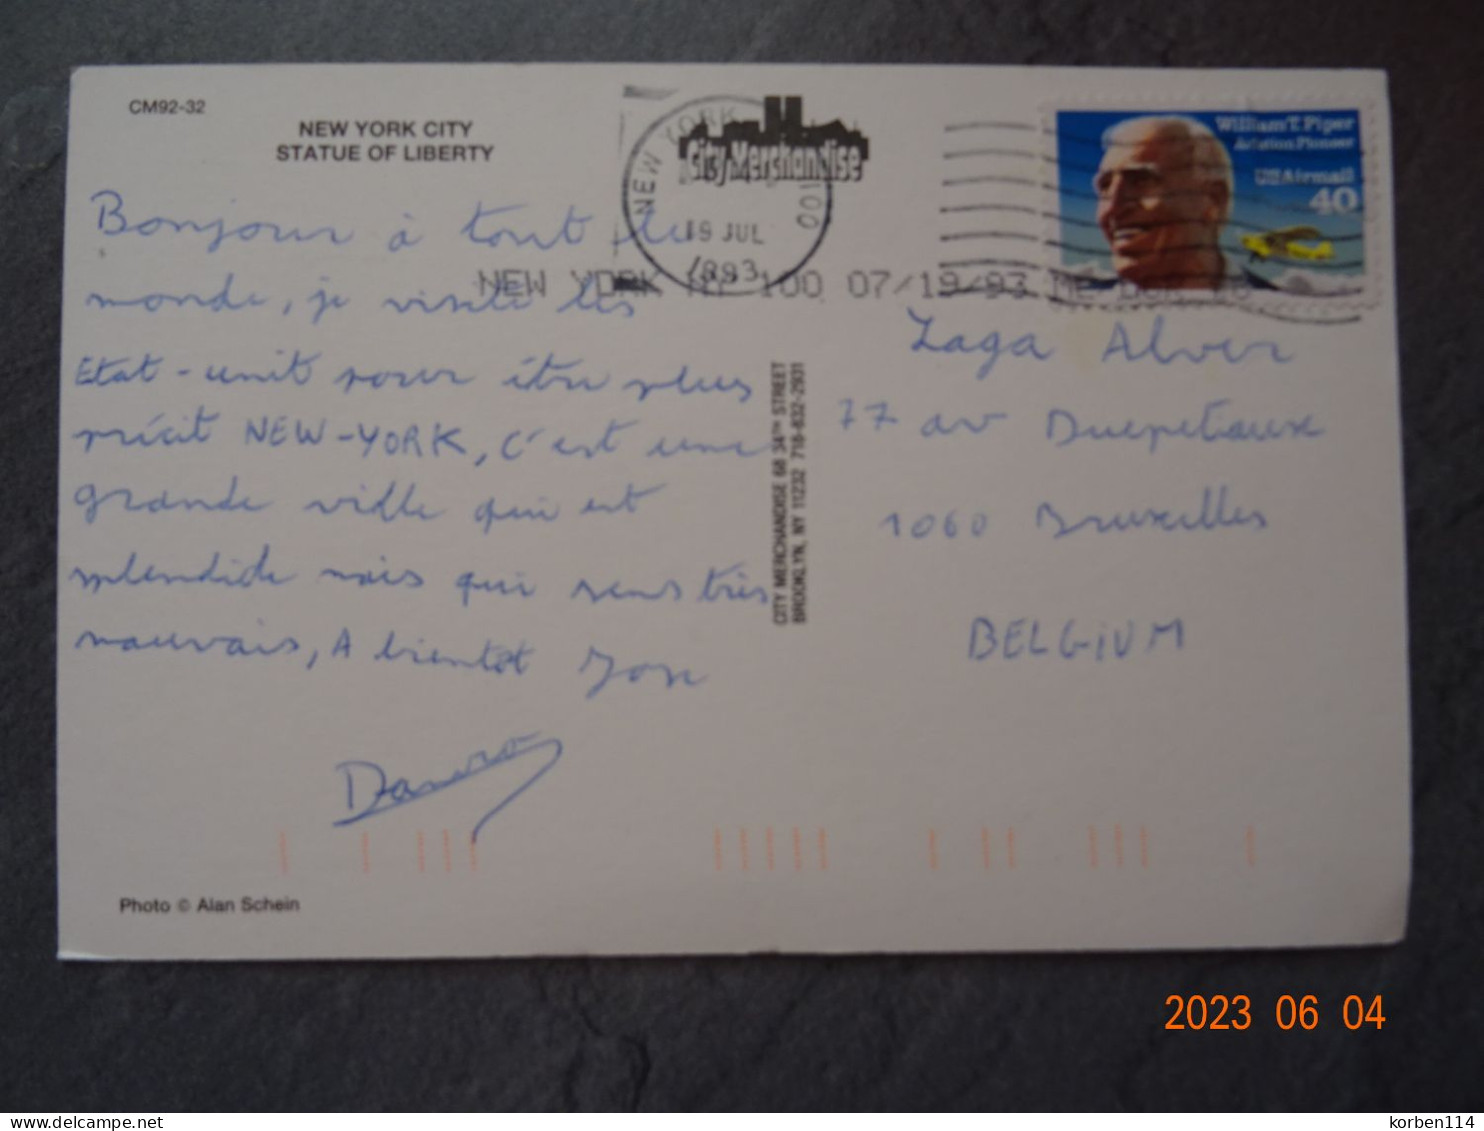 CM92-32
NEW YORK CITY
STATUE OF LIBERTY
City Merchandise
NEW YORK
100
19 JUL
1993
NEW YORK NY 100 07/19/93
William T. Piper
Aviation Pioneer
USAirmail
40
Bonjour à tout le
monde, je visite les
Etat-unit pour être plus
précit NEW-YORK, C'est une
grande ville qui est
splendide mais qui sens très
mauvais, A bientot
CITY MERCHANDISE 68 34TH STREET
BROOKLYN, NY 11232 718-832-2931
Zaga Alver
77 av Ducpetiaux
1060 Bruxelles
BELGiUM
Photo © Alan Schein
2023 06 04
korben114